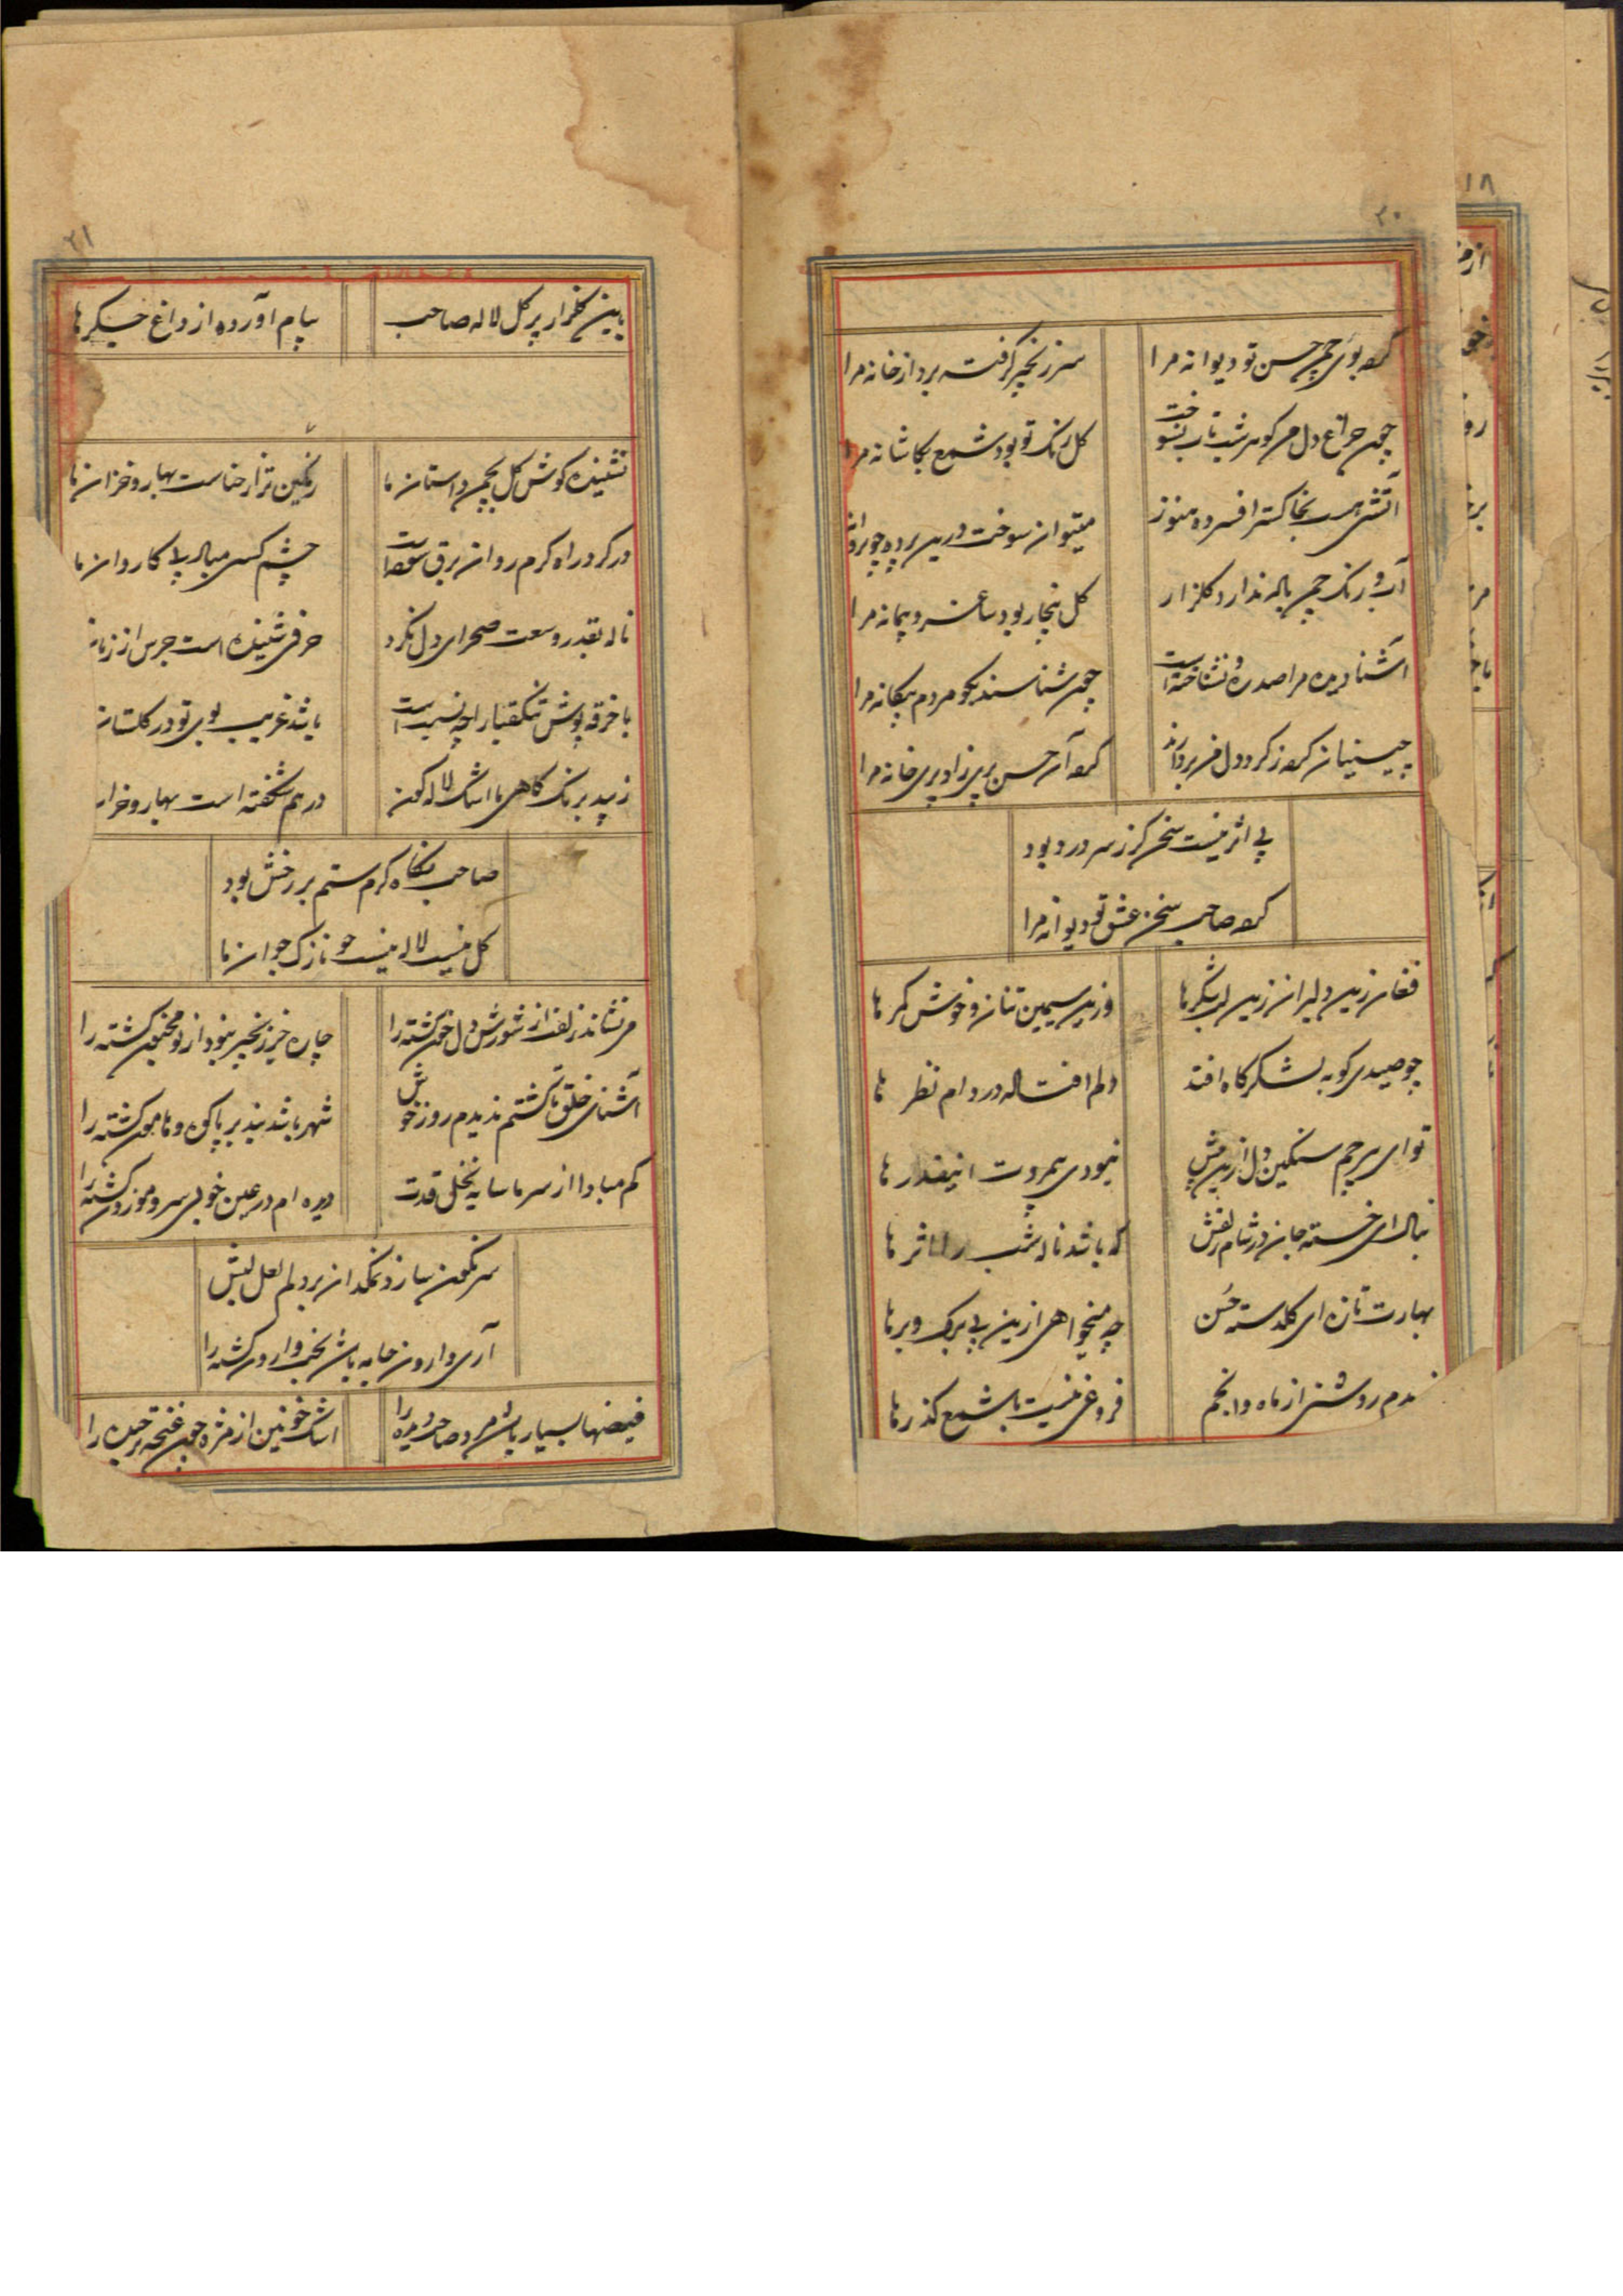 ۲۰
کرد بوی چمن حسن تو دیوانه مرا
سر زنجیر گرفت برد از خانه مرا
چون چراغ دل من کوهر شب تاب نسوخت
کل رنک تو بود شمع بکاشانه مرا
آتشی هست بخاکستر افسرده هنوز
میتوان سوخت درین پرده چو پروانه
آب و رنک چمن باله ندارد کلزار
کل بیخار بود ساغر و پیمانه مرا
آشنا دیده مرا صد ره و نشناخته است
چون شناسند بکو مردم بیکانه مرا
چینیان کرد ز کرد دل من بردارند
کرد آن حسن پری زاد پری خانه مرا
بی اثر نیست سخن کز سر درد بود
کرد صاحب سخن عشق تو دیوانه مرا
فغان زین دلبران زین لشکرها
وزین سیمین تنان و خوش کمر ها
چو صیدی کو به لشکرکاه افتد
دلم افتاده در دام نظر ها
تو ای بیرحم سنکین دل ازین پیش
نبودی بیمروت اینقدر ها
بنال ای خسته جان در شام زلفش
که باشد ناله شب را اثر ها
بهارت تازه ای کلدسته حسن
چه میخواهی ازین بی برک و برها
ندیدم روشنی از ماه و انجم
فروغی نیست با شمع کذرها
۲۱
باین کلزار پر کل لاله صاحب
پیام آورده از داغ جکرها
نشنیده کوش کل بچمن داستان ما
رنکین تر از حناست بهار و خزان ما
در کرد راه کرم روان برق سوخته است
چشم کسی مباد پی کاروان ما
ناله بقدر وسعت صحرای دل نکرد
حرفی شنیده است جرس از زبان
با خرقه پوش تنکقبا را چه نسبت است
باشد غریب بوی تو در کلستان
زیبد برنک کاهی ما اشک لاله کون
در هم شکفته است بهار و خزان
صاحب نکاه کرم ستم بر رخش بود
کل نیست لاله نیست چو نازک جوان ما
من نشاندز لف از شورش دل خون کشته را
چاره جز زنجیر نبود از تو مجنون کشته را
آشنای خلق تا کشتم ندیدم روز خوش
شهر باشد بند بر پا کوه و هامون کشته را
کم مبادا از سر ما سایه نخلی قدت
دیده ام در عین خوبی سرو موزون کشته را
سرنکون سازد نمکدان بر دلم لعل لبش
آری وارون جامه باش بخت وارون کشته را
فیضها بسیار باشد مرد صاحب دیده را
اشک خونین از مژه چون غنچه بر چیده را